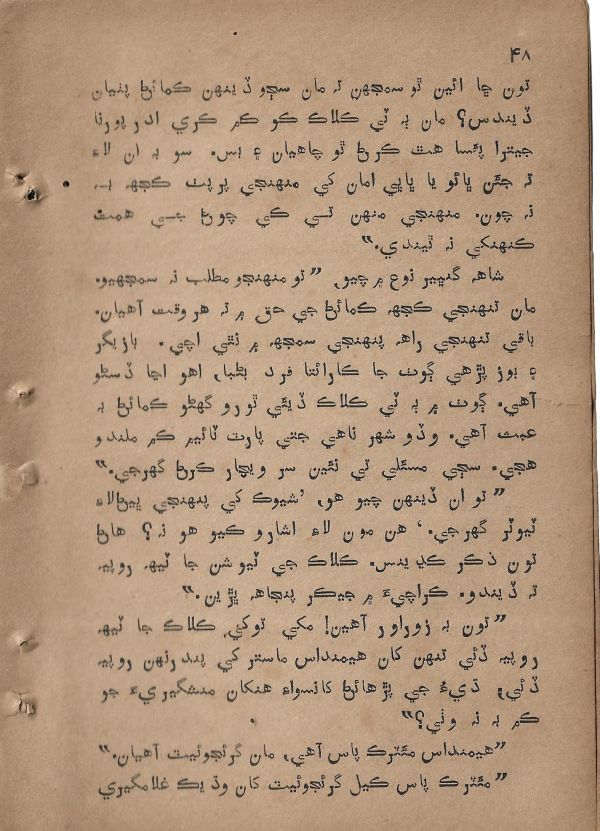 ۴۸
تون ڇا ائين ٿو سمجهين تہ مان سڄو ڏينهن ڪمائڻ پٺيان
ڏيندس؟ مان بہ ٽي ڪلاڪ ڪو ڪم ڪري ادر پورنا
جيترا پئسا هٿ ڪرڻ ٿو چاهيان ۽ بس. سو بہ ان لاءِ
تہ جيئن ڀائو يا ڀاڀي امان کي منهنجي پرپٺ ڪجهہ بہ
نہ چون. منهنجي منهن تي کي چوڻ جي همت
ڪنهنکي نہ ٿيندي.”
شاهہ گنڀير نوع ۾ چيو، ”تو منهنجو مطلب نہ سمجهيو.
مان تنهنجي ڪجهہ ڪمائڻ جي حق ۾ تہ هر وقت آهيان.
باقي تنهنجي راهہ پنهنجي سمجهہ ۾ نٿي اچي. بازيگر
۽ ٻوز پڙهي ڳوٺ جا ڪارائتا فرد بڻبا، اهو اڃا ڏسڻو
آهي. ڳوٺ ۾ بہ ٽي ڪلاڪ ڏيئي ٿورو گهڻو ڪمائڻ بہ
عبث آهي. وڏو شهر ناهي جتي پارٽ ٽائيم ڪم ملندو
هجي. سڄي مسئلي تي نئين سر ويچار ڪرڻ گهرجي.”
”تو ان ڏينهن چيو هو، ’شيوڪ کي پنهنجي ڀيڻ لاءِ
ٽيوٽر گهرجي.‘ هن مون لاءِ اشارو ڪيو هو نہ؟ هاڻ
تون ذڪر ڪڍينس. ڪلاڪ جي ٽيوشن جا ٽيهہ روپيہ
تہ ڏيندو. ڪراچيءَ ۾ جيڪر پنجاهہ ڀڙين.”
”تون بہ زوراور آهين! مکي توکي ڪلاڪ جا ٽيهہ
روپيہ ڏئي تنهن کان هيمنداس ماستر کي پندرنهن روپيہ
ڏئي، ڌيءُ جي پڙهائڻ کانسواءِ هنکان منشگيريءَ جو
ڪم بہ نہ وٺي؟”
”هيمنداس مئٽرڪ پاس آهي، مان گرئجوئيٽ آهيان.”
”مئٽرڪ پاس کيل گرئجوئيٽ کان وڌيڪ غلامگيري